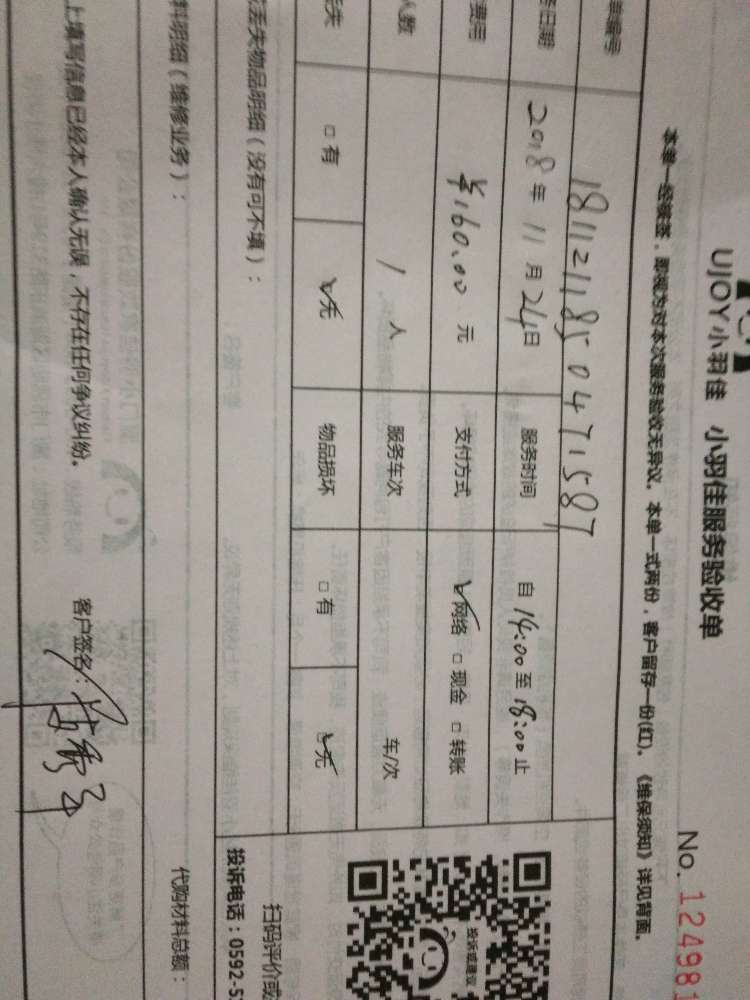 UJOY小羽佳 小羽佳服务验收单
No. 124981
本单一经接签，即视为对本次服务验收无异议。本单一式两份，客户留存一份(红)。《维保须知》详见背面。
单编号 181121185 0471587
日期 2018年11月24日 服务时间 自14:00至18:00止
费用 ¥160.00 元 支付方式 ☑网络 □现金 □转账
人数 / 人 服务车次 车/次
丢失 □有 ☑无 物品损坏 □有 ☑无
丢失物品明细（没有可不填）：
料明细（维修业务）：
代购材料总额：
上填写信息已经本人确认无误，不存在任何争议纠纷。 客户签名：
投诉或建议
扫码评价或
投诉电话：0592-5